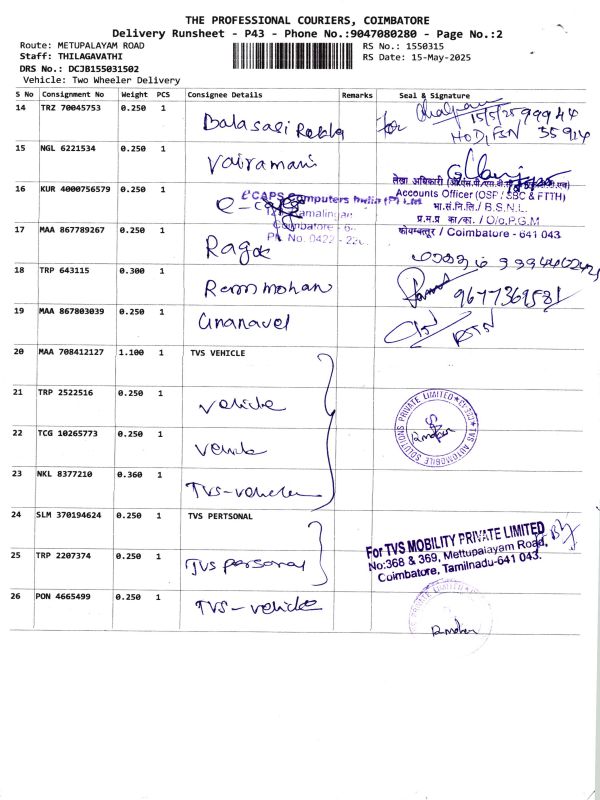 THE PROFESSIONAL COURIERS, COIMBATORE
Delivery Runsheet - P43 - Phone No.:9047080280 - Page No.:2
Route: METUPALAYAM ROAD
RS No.: 1550315
Staff: THILAGAVATHI
RS Date: 15-May-2025
DRS No.: DCJB155031502
Vehicle: Two Wheeler Delivery
S No Consignment No Weight PCS Consignee Details Remarks Seal & Signature
14 TRZ 70045753 0.250 1 Balasali
15/5/25 99944
HOD, FSN 35914
15 NGL 6221534 0.250 1 Vairamani
16 KUR 4000756579 0.250 1 e-caps
eCAPS Computers India (P) Ltd
Ramalingam
Coimbatore - 64
Ph. No. 0422 - 220
Accounts Officer (OSP / SBC & FTTH)
भा.सं.नि.लि./ B.S.N.L.
प्र.म.प्र का/का. / O/o.P.G.M
कोयम्बत्तूर / Coimbatore - 641 043.
17 MAA 867789267 0.250 1
18 TRP 643115 0.300 1 Rammohan
9677369581
19 MAA 867803039 0.250 1 Gnanavel
20 MAA 708412127 1.100 1 TVS VEHICLE
21 TRP 2522516 0.250 1 vehicle
TVS AUTOMOBILE SOLUTIONS PRIVATE LIMITED
22 TCG 10265773 0.250 1 vehicle
23 NKL 8377210 0.360 1 TVS-vehicle
24 SLM 370194624 0.250 1 TVS PERTSONAL
For TVS MOBILITY PRIVATE LIMITED
No:368 & 369, Mettupalayam Road,
Coimbatore, Tamilnadu-641 043.
25 TRP 2207374 0.250 1 TVS personal
26 PON 4665499 0.250 1 TVS-vehicle
PRIVATE LIMITED